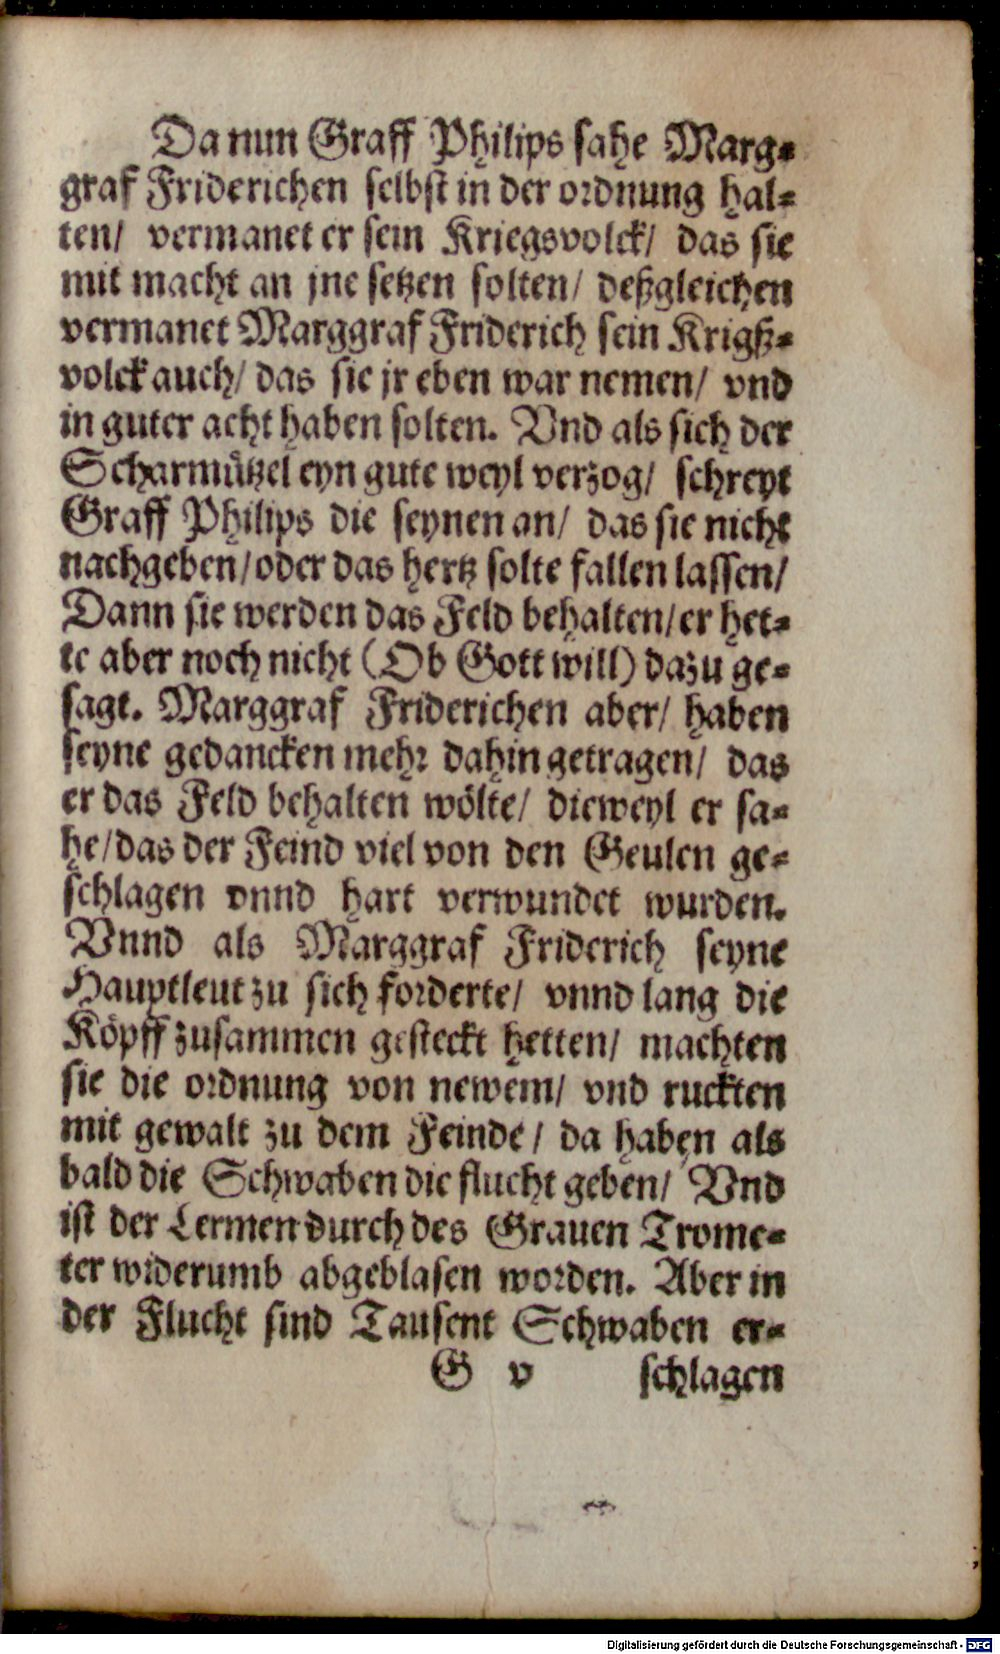 Da nun Graff Philips sahe Marg⸗
graf Friderichen selbst in der ordnung hal⸗
ten/ vermanet er sein Kriegsvolck/ das sie
mit macht an jne setzen solten/ deßgleichen
vermanet Marggraf Friderich sein Krigß⸗
volck auch/ das sie jr eben war nemen/ vnd
in guter acht haben solten. Vnd als sich der
Scharmützel eyn gute weyl verzog/ schreyt
Graff Philips die seynen an/ das sie nicht
nachgeben/ oder das hertz solte fallen lassen/
Dann sie werden das Feld behalten/ er het⸗
te aber noch nicht (Ob Gott will) dazu ge⸗
sagt. Marggraf Friderichen aber/ haben
seyne gedancken mehr dahin getragen/ das
er das Feld behalten wölte/ dieweyl er sa⸗
he/ das der Feind viel von den Geulen ge⸗
schlagen vnnd hart verwundet wurden.
Vnnd als Marggraf Friderich seyne
Hauptleut zu sich forderte/ vnnd lang die
Köpff zusammen gesteckt hetten/ machten
sie die ordnung von newem/ vnd ruckten
mit gewalt zu dem Feinde/ da haben als
bald die Schwaben die flucht geben/ Vnd
ist der Lermen durch des Grauen Trome⸗
ter widerumb abgeblasen worden. Aber in
der Flucht sind Tausent Schwaben er⸗
G v schlagen
Digitalisierung gefördert durch die Deutsche Forschungsgemeinschaft - DFG